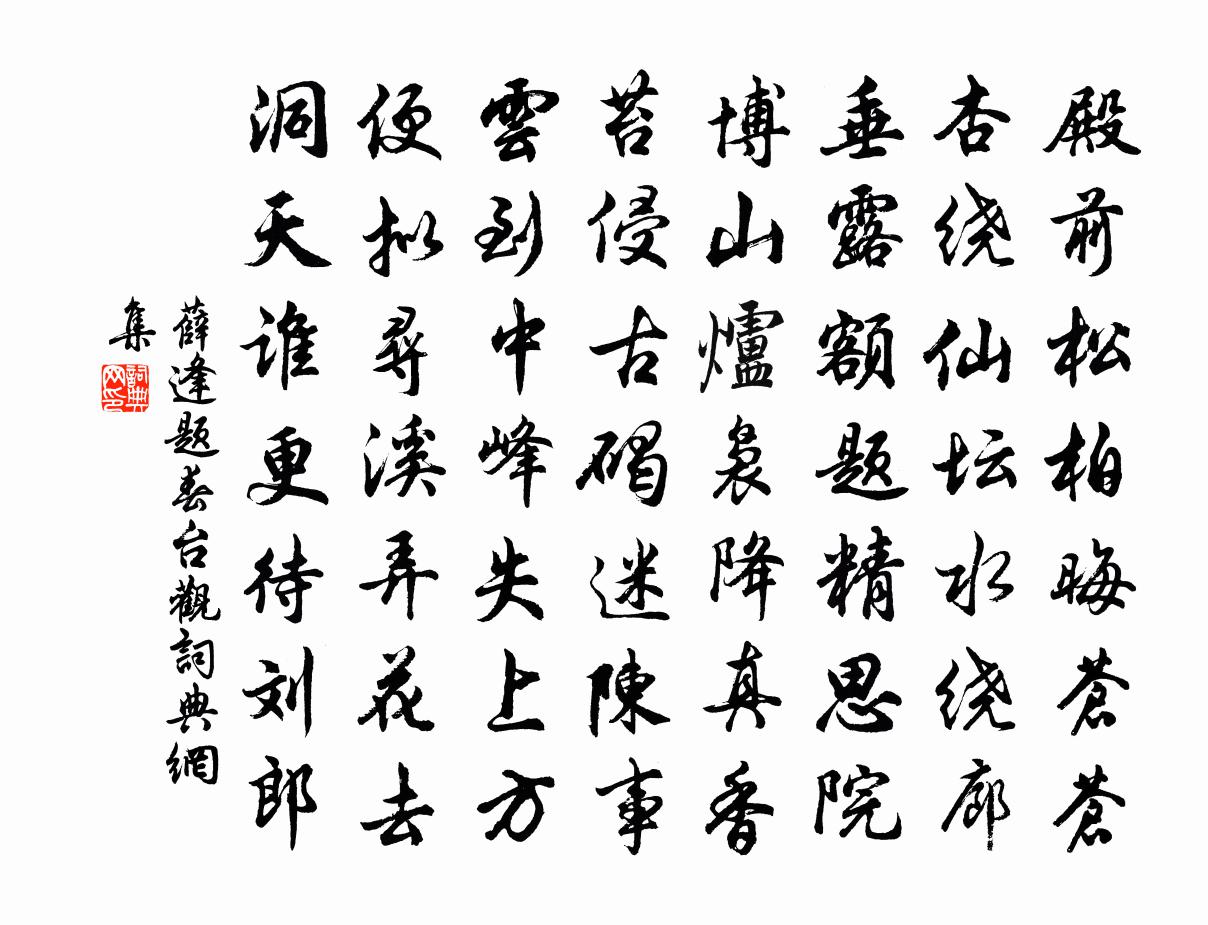 殿前松柏晦蒼蒼
杏绕仙坛水绕廊
垂露额题精思院
博山爐裊降真香
苔侵古碣迷陳事
雲到中峰失上方
便拟尋溪弄花去
洞天谁更待刘郎
薛逢题春台觀詞典網
集
詞典
网印